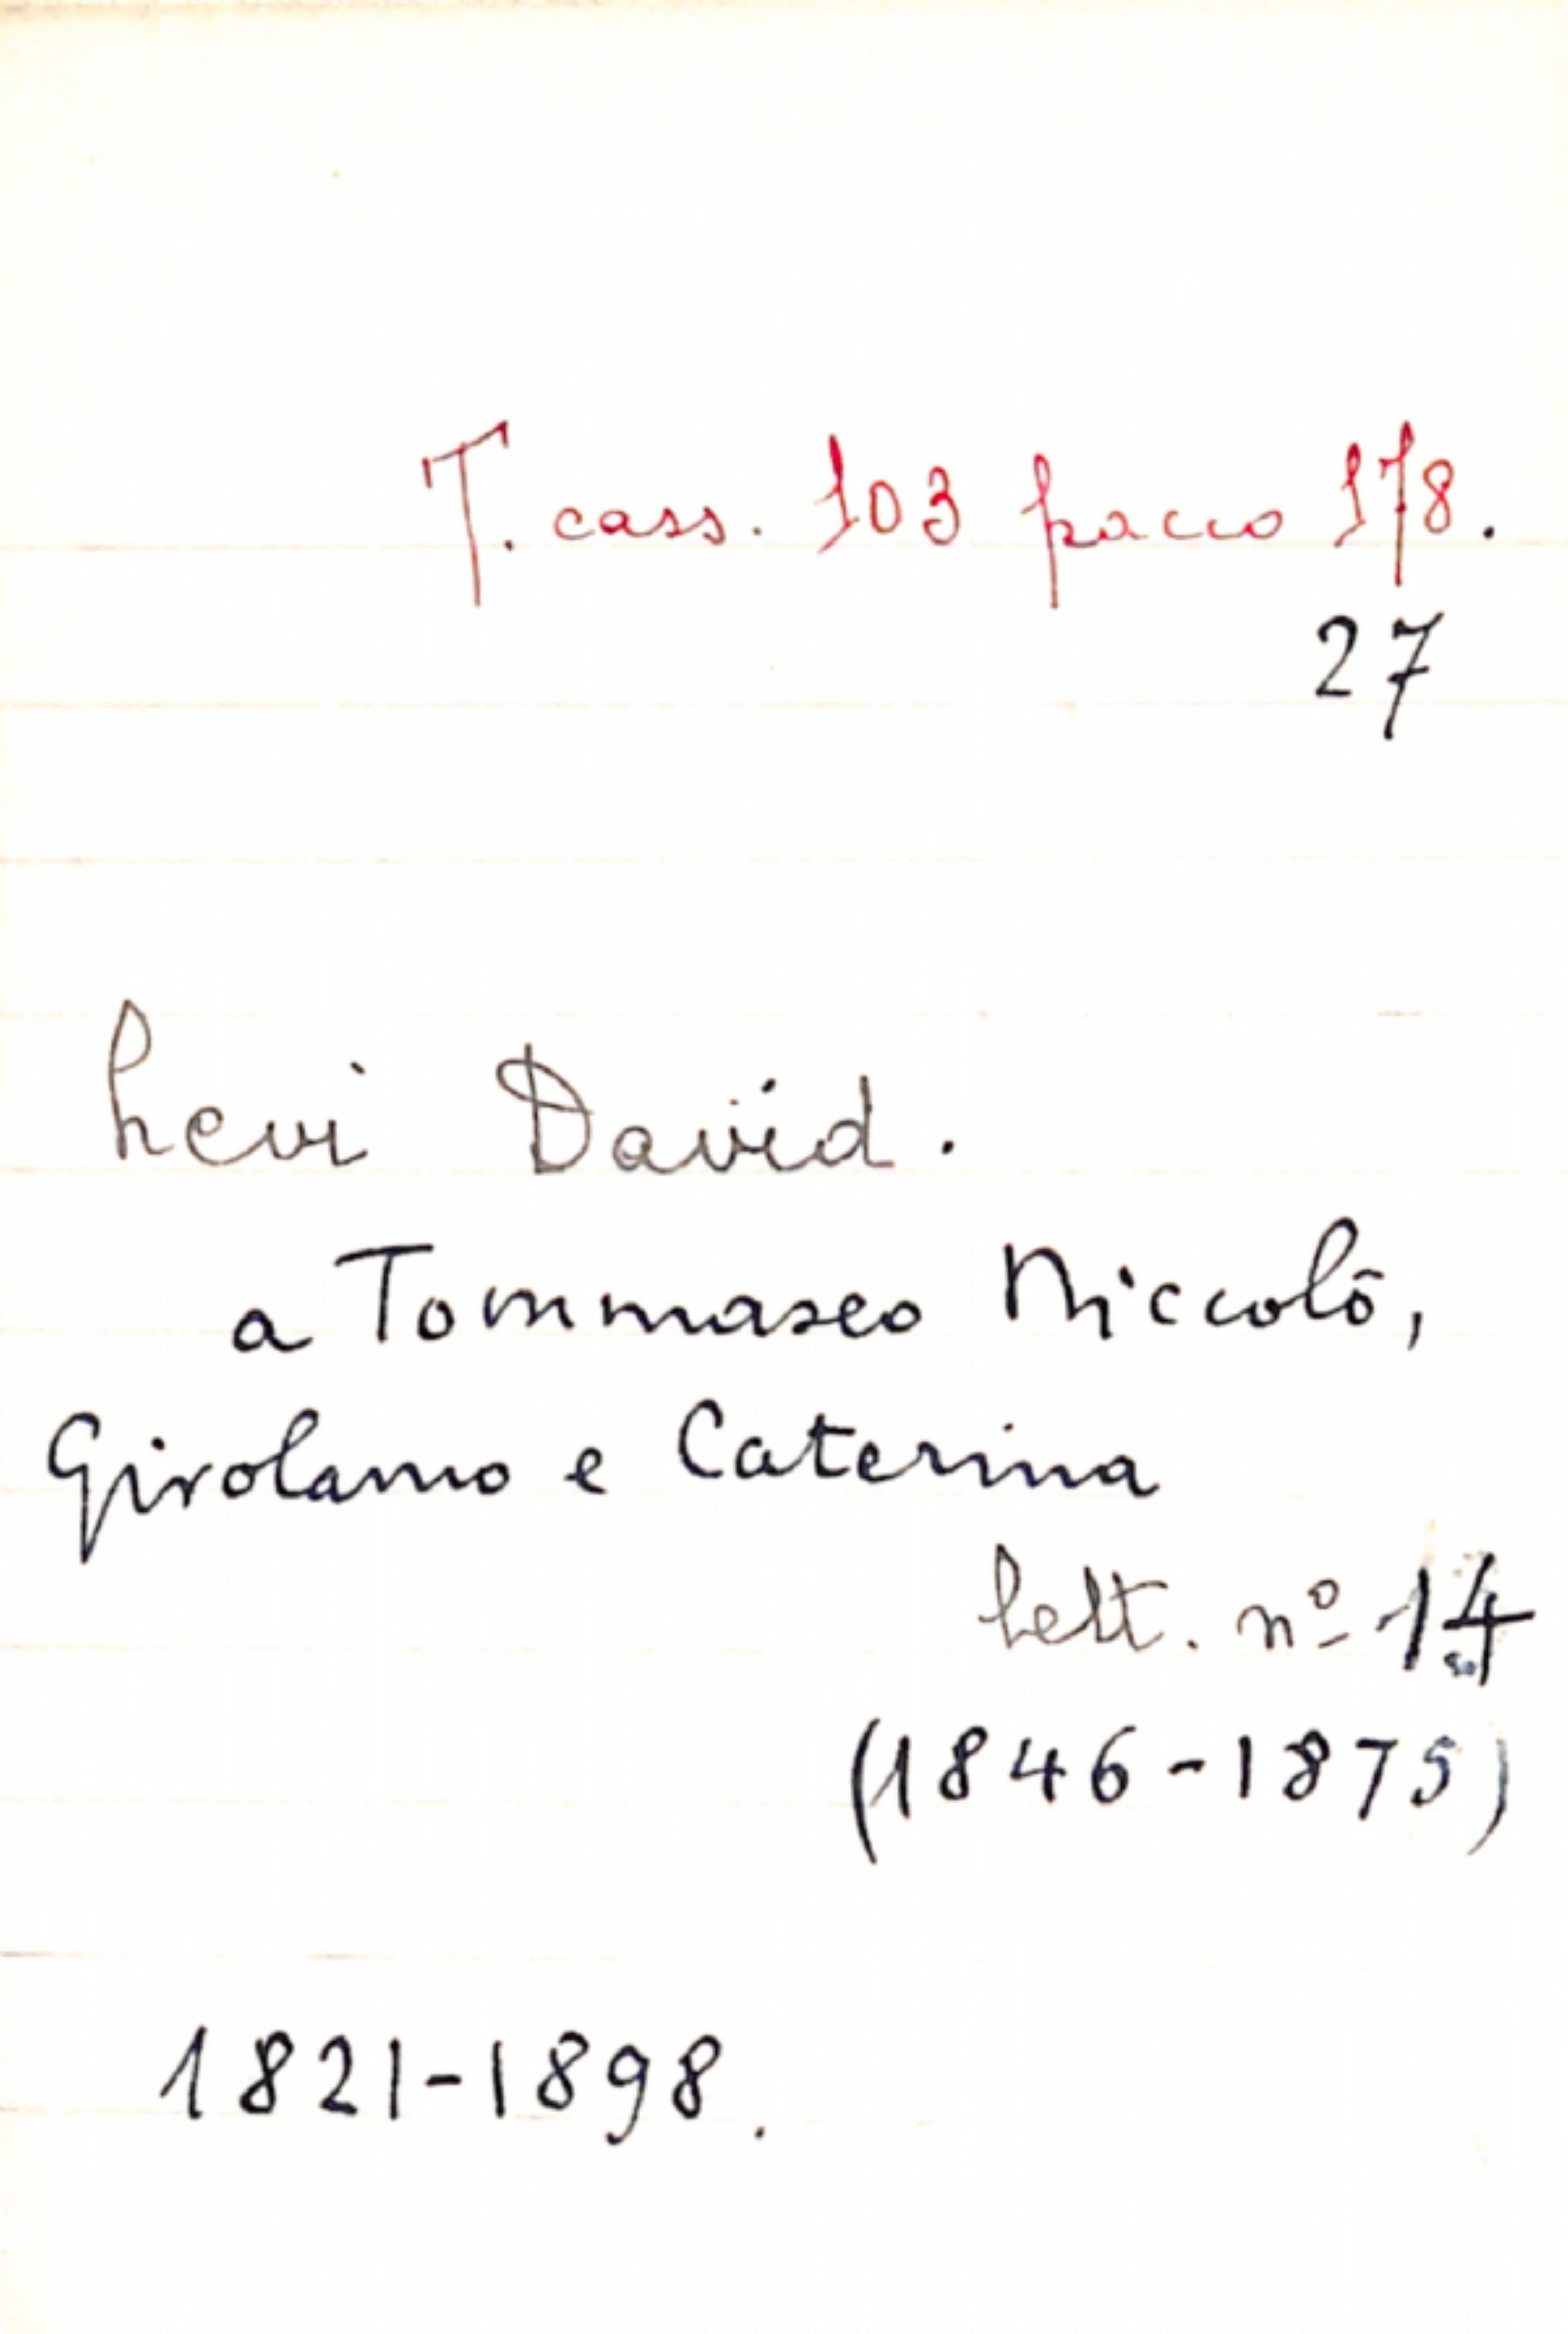 T. cass. 103 pacco 178.
27
Levi David.
a Tommaseo Niccolò,
Girolamo e Caterina
lett. nº 14
(1846-1875)
1821-1898.